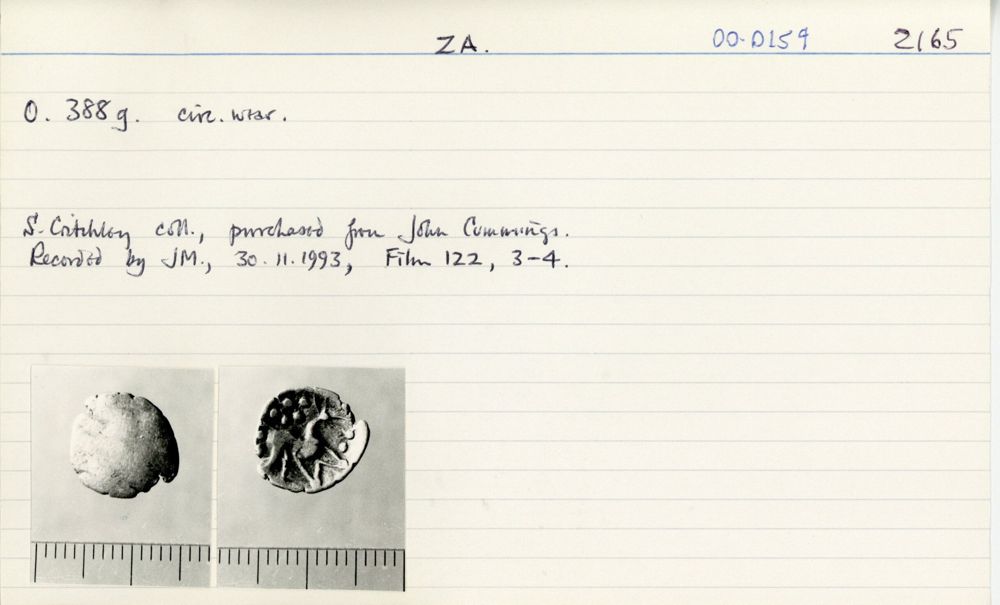 ZA. 00-D159 2165
0. 388g. circ. wear.
S. Critchley coll., purchased from John Cummings.
Recorded by JM., 30. 11. 1993, Film 122, 3-4.